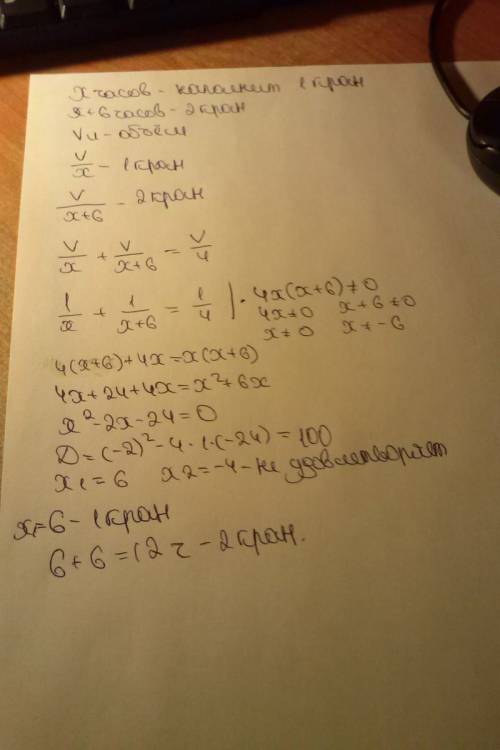 x часов - наполнит 1 кран
x+6 часов - 2 кран
V - объём
V/x - 1 кран
V/(x+6) - 2 кран
V/x + V/(x+6) = V/4
1/x + 1/(x+6) = 1/4 | · 4x(x+6) ≠ 0
4x≠0 x+6≠0
x≠0 x≠-6
4(x+6)+4x=x(x+6)
4x+24+4x=x²+6x
x²-2x-24=0
D=(-2)²-4·1·(-24)=100
x1=6 x2=-4-не удовлетворяет
x=6-1 кран
6+6=12 ч - 2 кран.